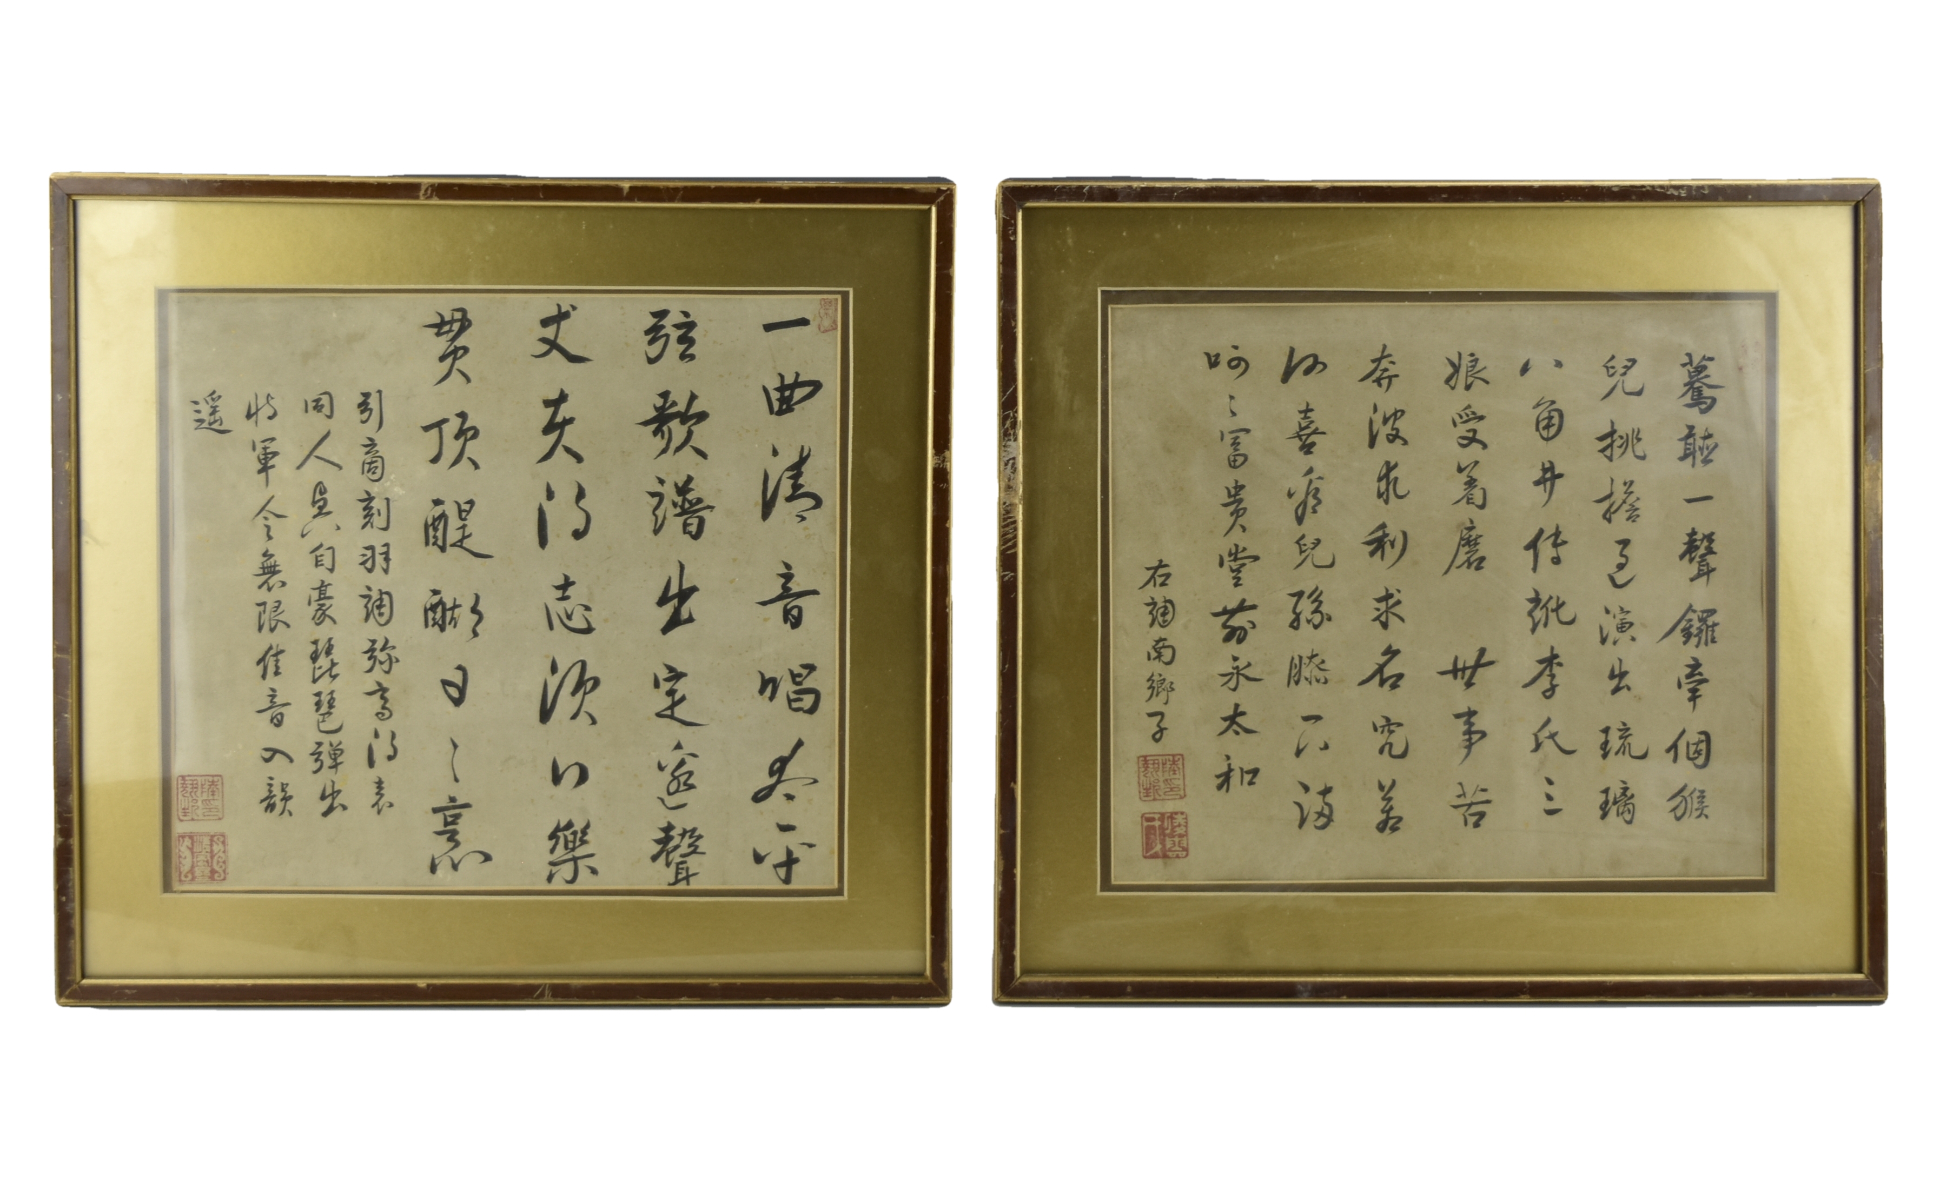 一曲清音唱平
弦歌譜出定邊聲
丈夫得志須行樂
貫頂醍醐日〻意
引商刻羽調弥高得意
同人興自豪琵琶彈出
將軍令無限佳音入韻
遥
驀聽一聲鑼牽個猴
兒挑擔過演出琉璃
八角井傳訛李氏三
娘受着磨 世事苦
奔波求利求名究若
何喜看兒孫膝下滿
呵〻富貴堂前永太和
右調南鄉子